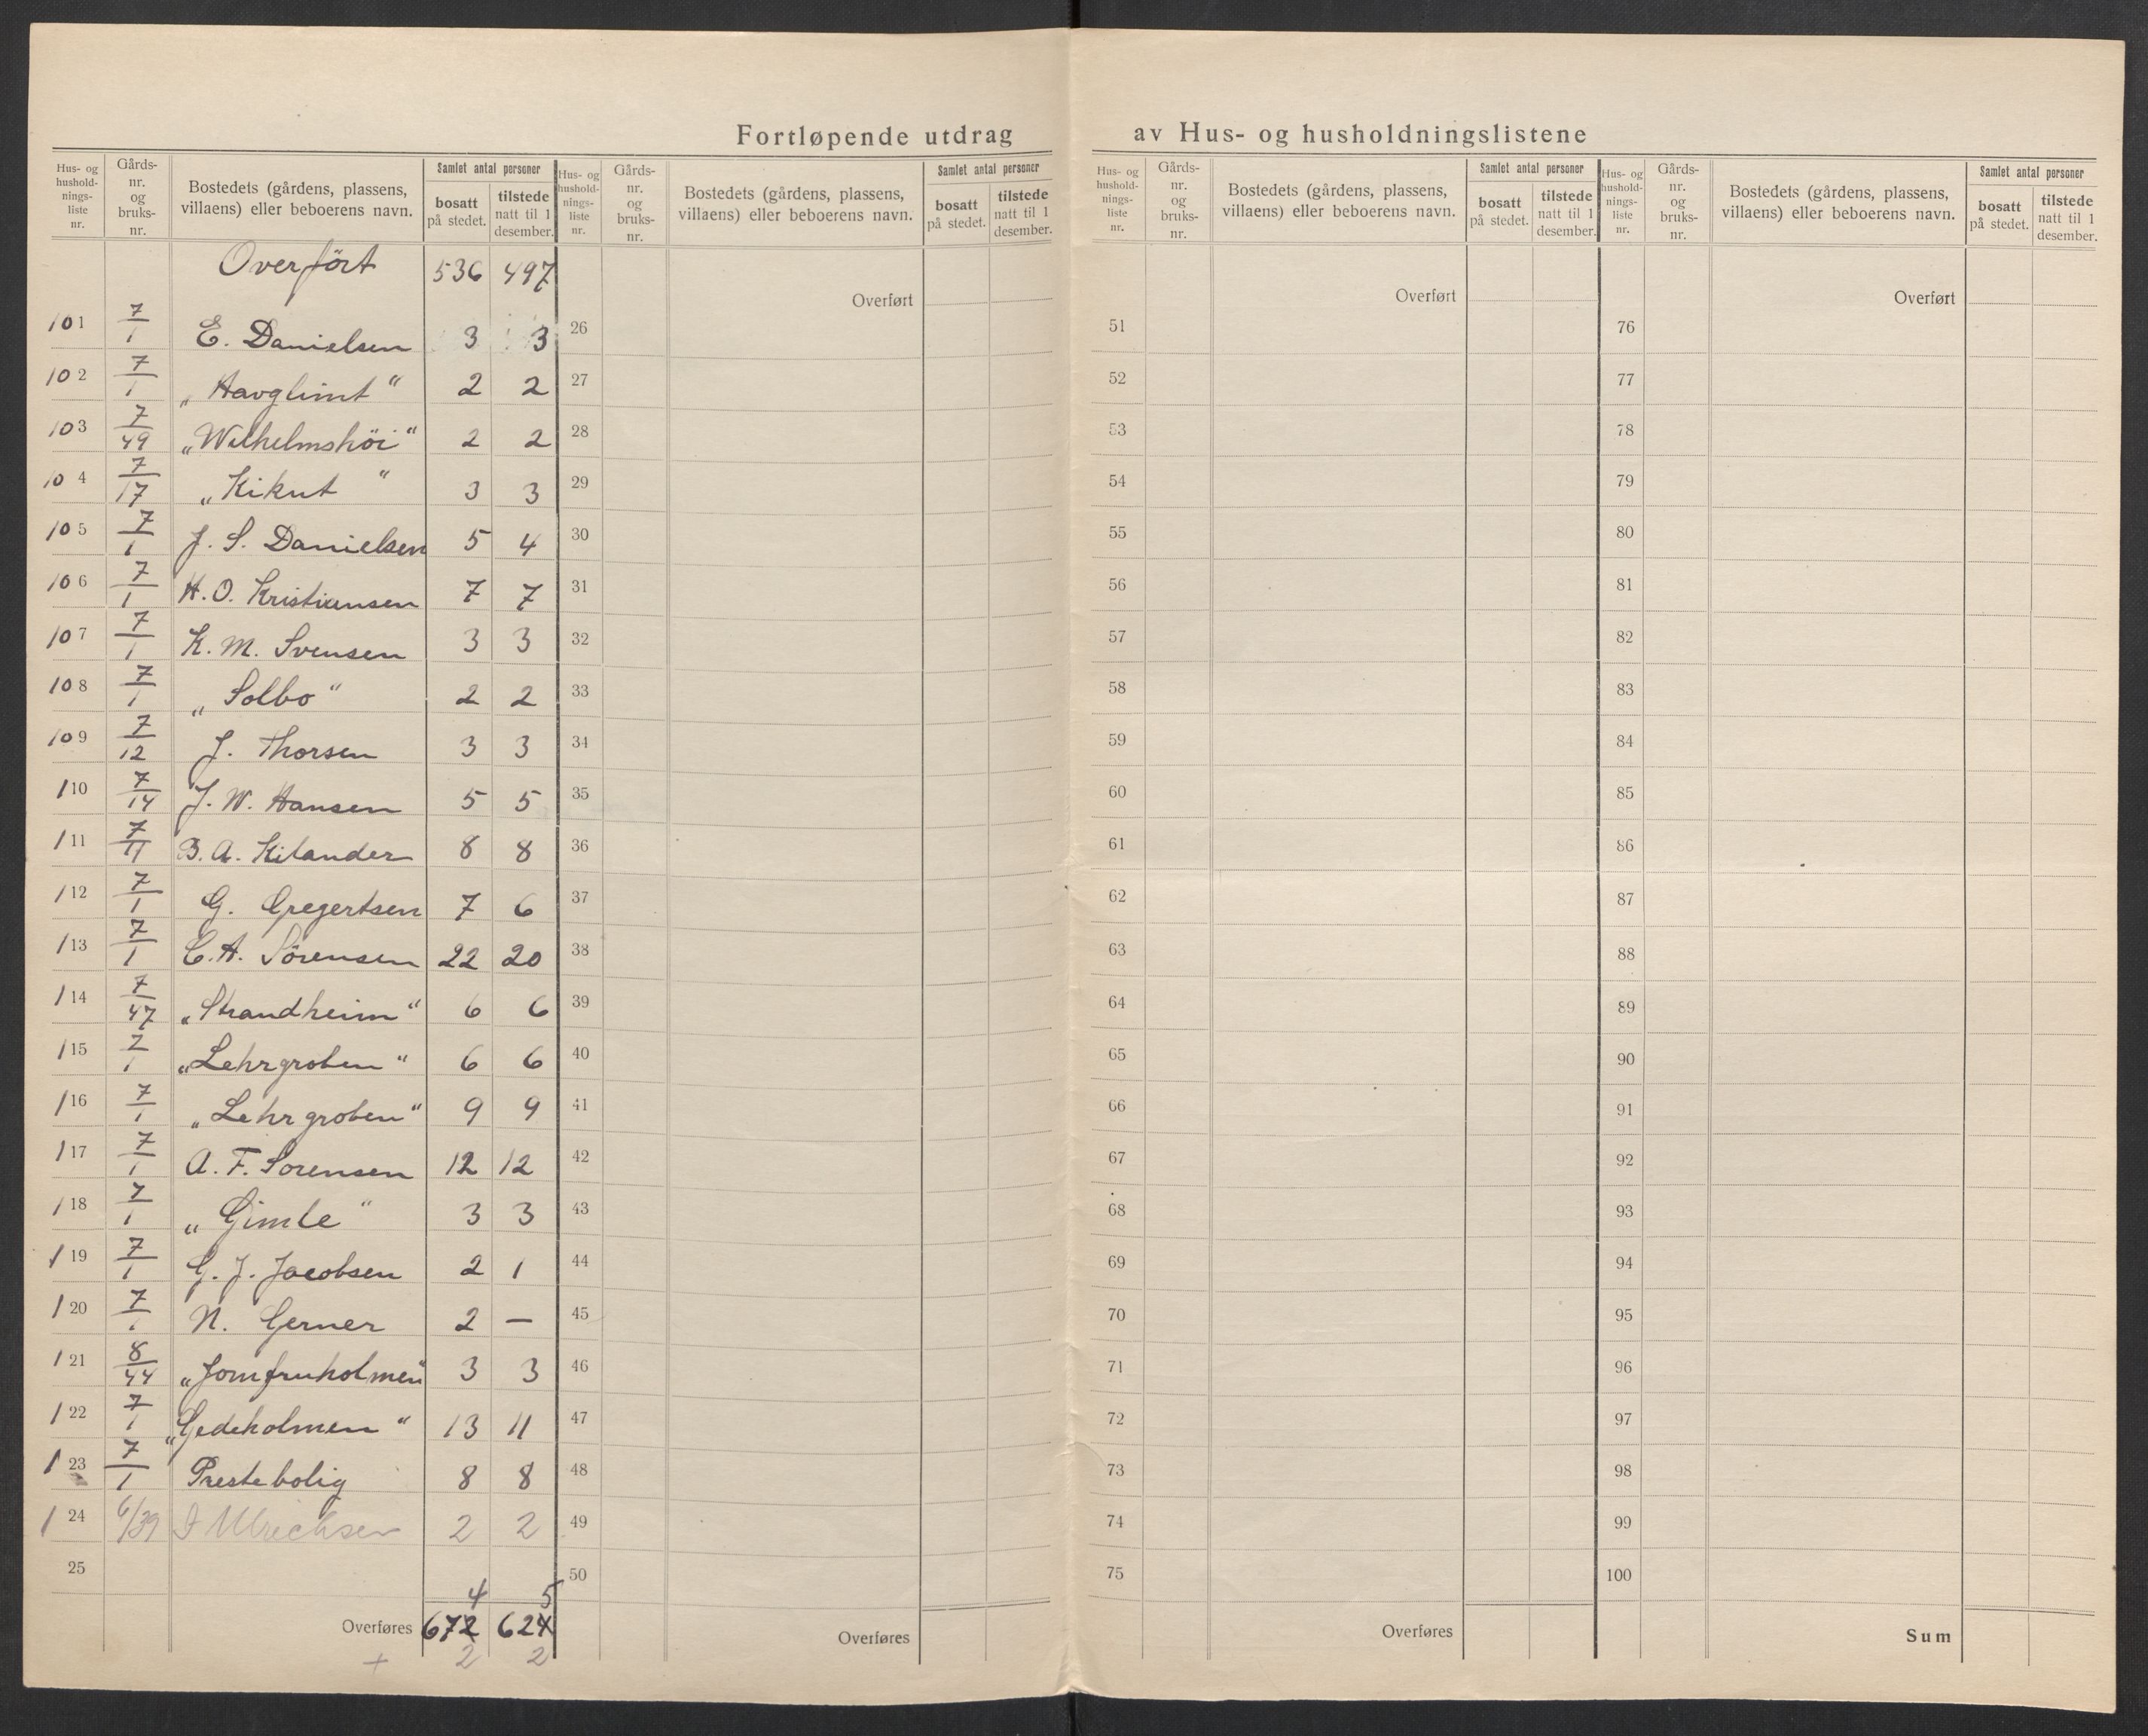 Fortløpende utdrag av Hus- og husholdningslistene
Hus- og hushold-nings-liste nr. Gårds-nr. og bruks-nr. Bostedets (gårdens, plassens, villaens) eller beboerens navn. Samlet antal personer bosatt på stedet. tilstede natt til 1 desember.
Overført 536 497
101 7/1 E. Danielsen 3 3
102 7/1 „Havglimt“ 2 2
103 7/49 „Wilhelmshöi“ 2 2
104 7/17 „Kikut“ 3 3
105 7/1 J. S. Danielsen 5 4
106 7/1 H. O. Kristiansen 7 7
107 7/1 K. M. Svensen 3 3
108 7/1 „Solbo“ 2 2
109 7/12 J. Thorsen 3 3
110 7/14 J. W. Hansen 5 5
111 7/11 B. A. Kilander 8 8
112 7/1 G. Gregertsen 7 6
113 7/1 C. A. Sörensen 22 20
114 7/47 „Strandheim“ 6 6
115 7/1 „Lehrgroben“ 6 6
116 7/1 „Lehrgroben“ 9 9
117 7/1 A. F. Sorensen 12 12
118 7/1 „Gimle“ 3 3
119 7/1 G. J. Jacobsen 2 1
120 7/1 N. Gerner 2 —
121 8/44 „Jomfruholmen“ 3 3
122 7/1 „Gedeholmen“ 13 11
123 7/1 Prestebolig 8 8
124 6/39 Ulrichsen 2 2
25
4 5
Overføres 672 624
+ 2 2
Hus- og hushold-nings-liste nr. Gårds-nr. og bruks-nr. Bostedets (gårdens, plassens, villaens) eller beboerens navn. Samlet antal personer bosatt på stedet. tilstede natt til 1 desember.
Overført
26
27
28
29
30
31
32
33
34
35
36
37
38
39
40
41
42
43
44
45
46
47
48
49
50
Overføres
Hus- og hushold-nings-liste nr. Gårds-nr. og bruks-nr. Bostedets (gårdens, plassens, villaens) eller beboerens navn. Samlet antal personer bosatt på stedet. tilstede natt til 1 desember.
Overført
51
52
53
54
55
56
57
58
59
60
61
62
63
64
65
66
67
68
69
70
71
72
73
74
75
Overføres
Hus- og hushold-nings-liste nr. Gårds-nr. og bruks-nr. Bostedets (gårdens, plassens, villaens) eller beboerens navn. Samlet antal personer bosatt på stedet. tilstede natt til 1 desember.
Overført
76
77
78
79
80
81
82
83
84
85
86
87
88
89
90
91
92
93
94
95
96
97
98
99
100
Sum